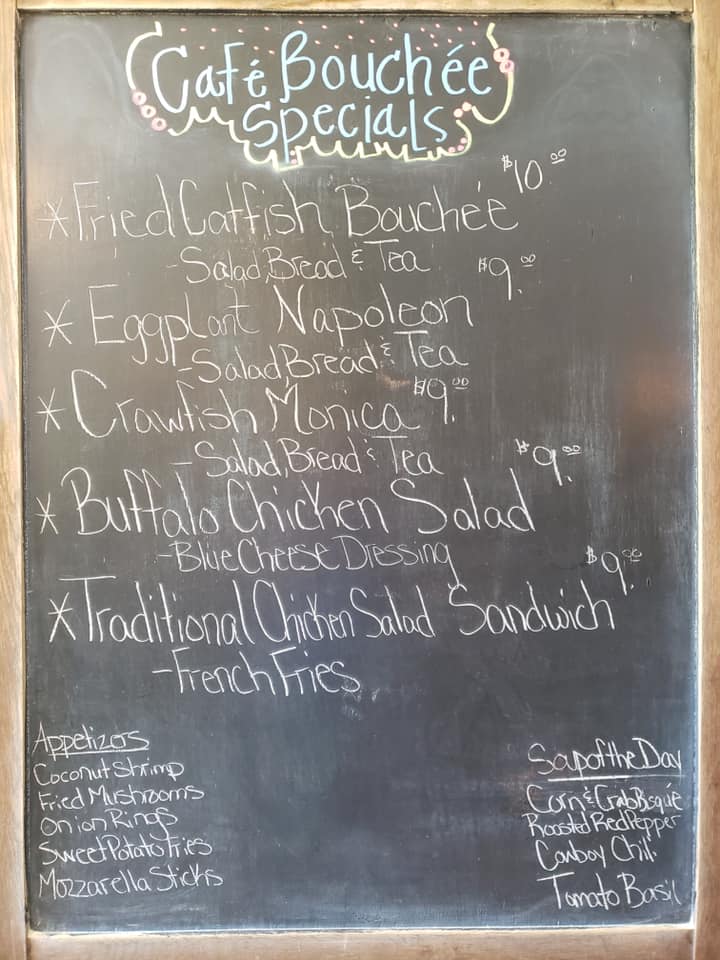 Café Bouchée
Specials
$10.00
*Fried Catfish Bouchée
-Salad, Bread & Tea
$9.00
* Eggplant Napoleon
-Salad, Bread & Tea
$9.00
* Crawfish Monica
- Salad, Bread & Tea
$9.00
* Buffalo Chicken Salad
-Blue Cheese Dressing
$9.00
*Traditional Chicken Salad Sandwich
-French Fries
Appetizers
Coconut Shrimp
Fried Mushrooms
Onion Rings
Sweet Potato Fries
Mozzarella Sticks
Soup of the Day
Corn & Crab Bisque
Roasted Red Pepper
Cowboy Chili
Tomato Basil